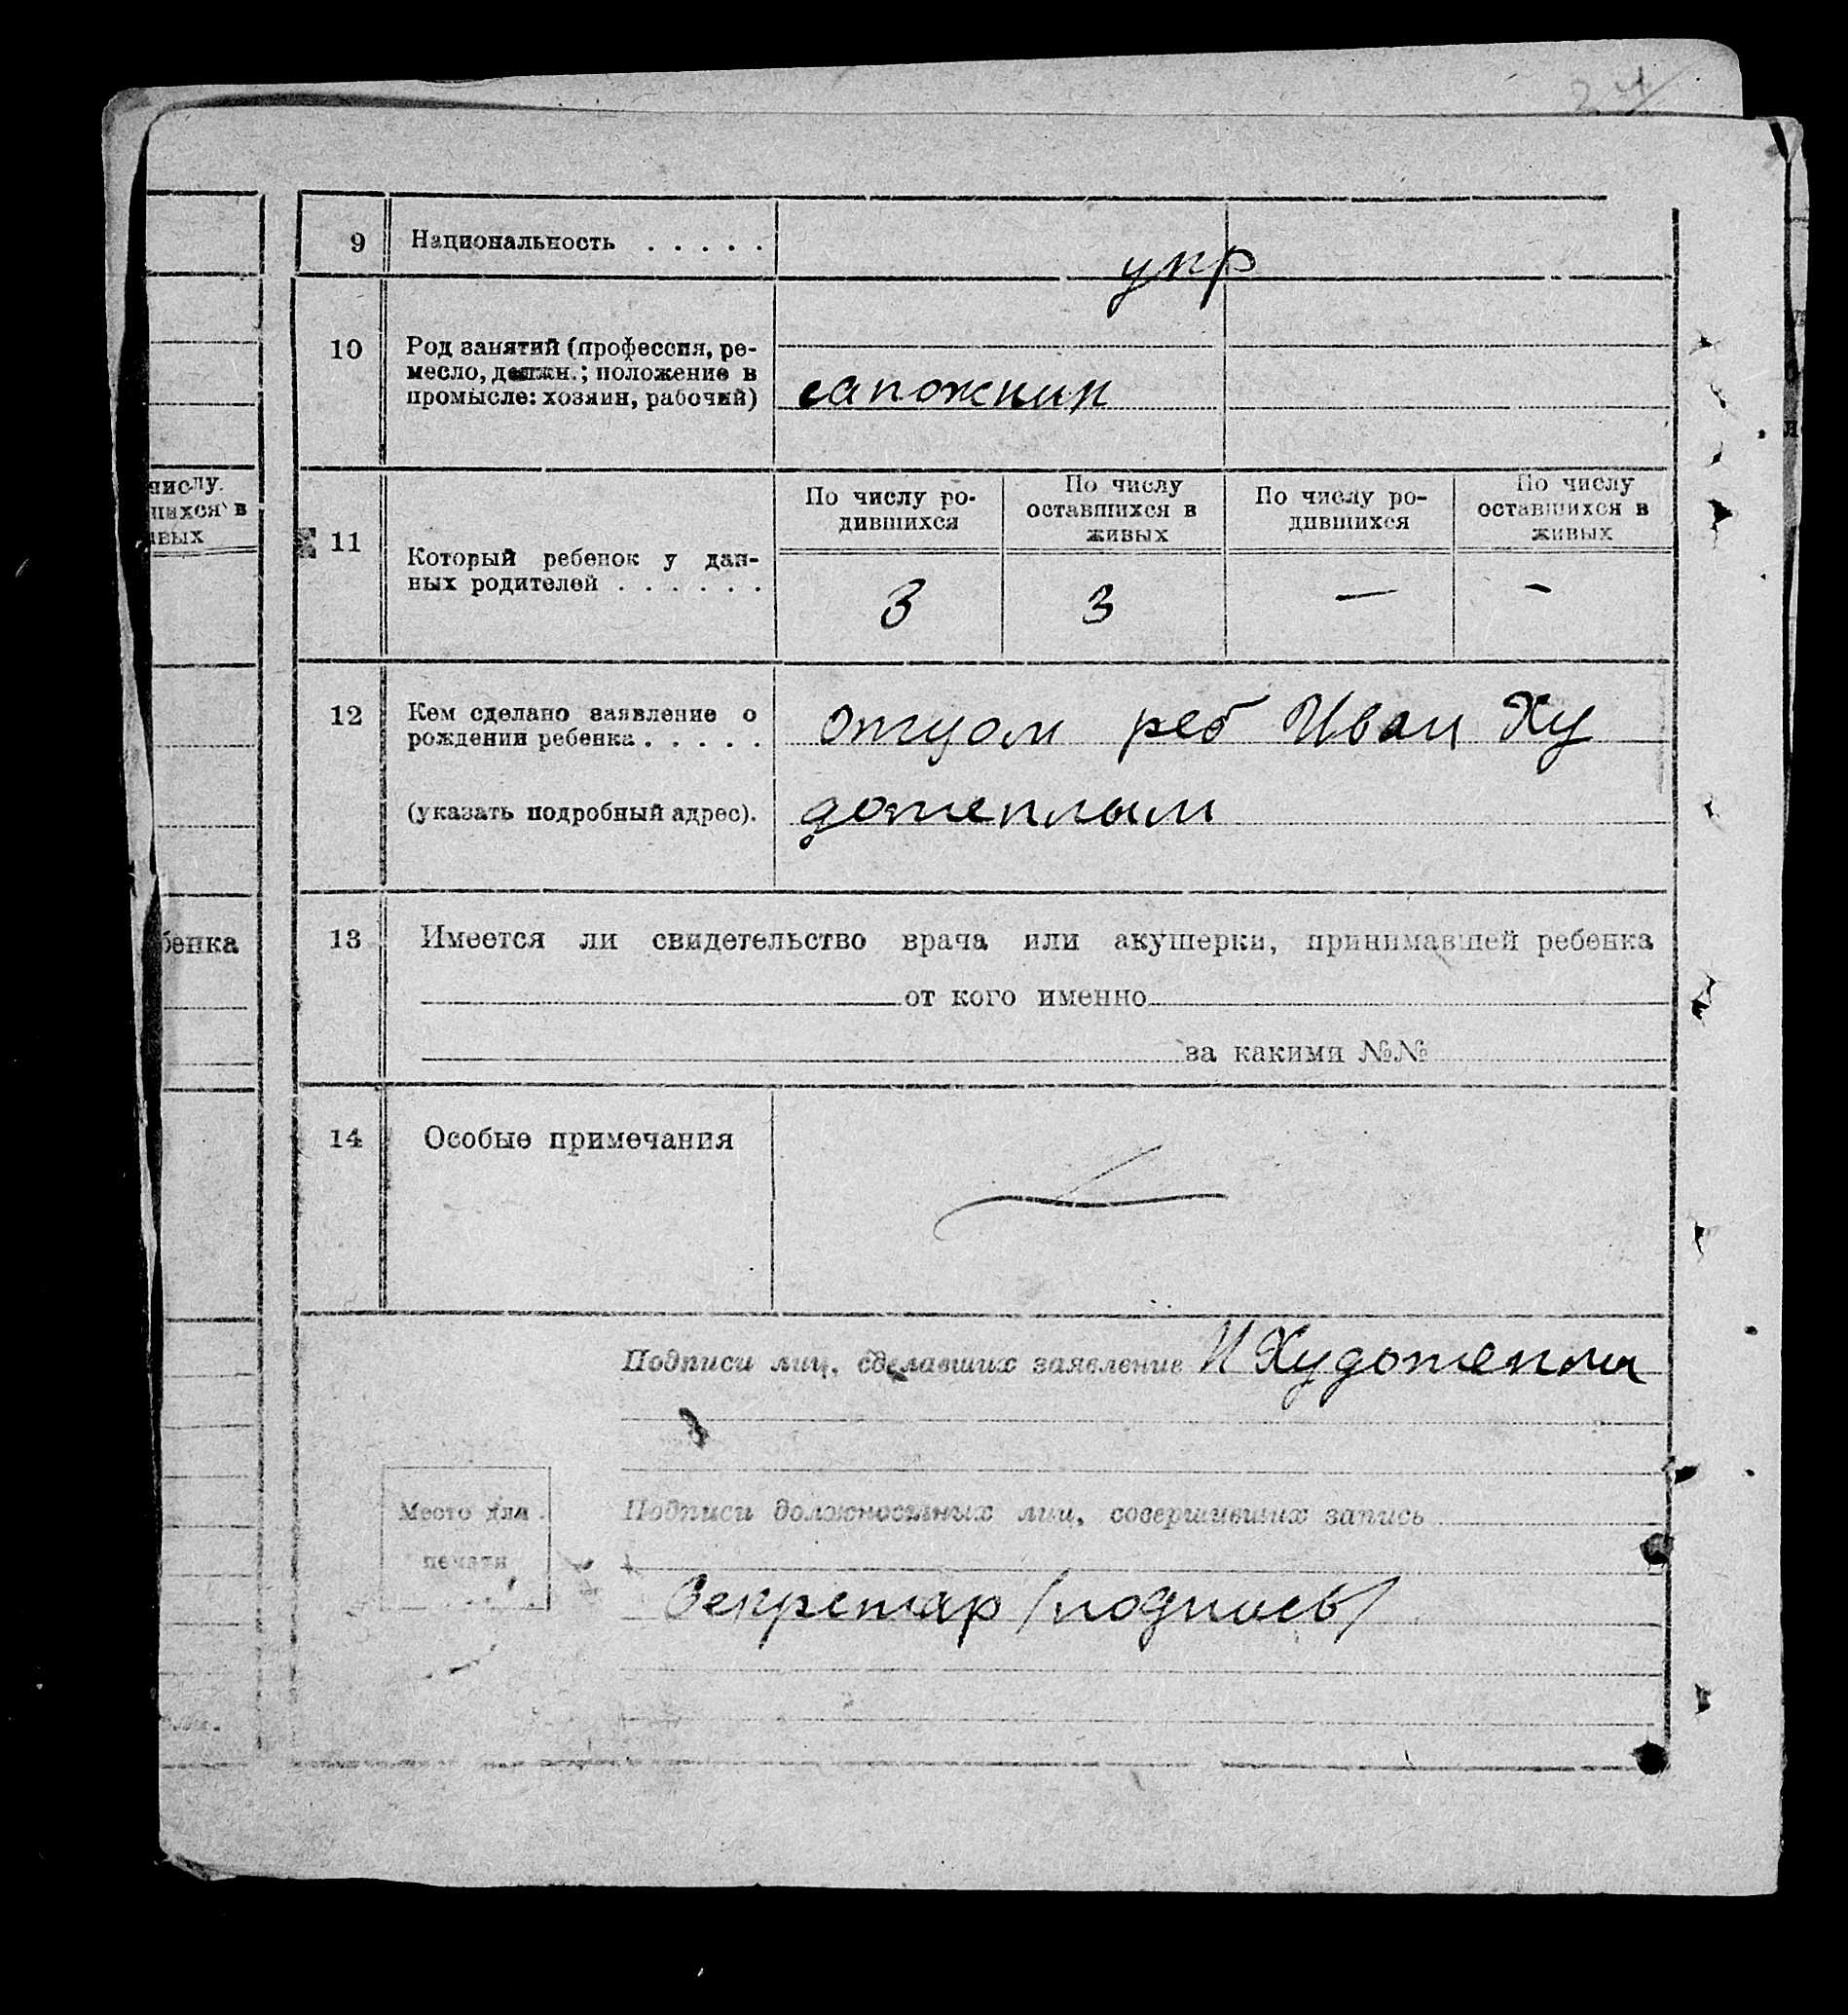 24
9 Национальность . . . . .
укр
10 Род занятий (профессия, ре-
месло, должн.; положение в
промысле: хозяин, рабочий)
сапожник
числу
шихся в
ивых
11 Который ребенок у дан-
ных родителей . . . . . .
По числу ро-
дившихся
По числу
оставшихся в
живых
По числу ро-
дившихся
По числу
оставшихся в
живых
3 3 — -
12 Кем сделано заявление о
рождении ребенка . . . . .
(указать подробный адрес).
отцом реб Иван Ху
дотеплым
бенка
13 Имеется ли свидетельство врача или акушерки, принимавшей ребенка
от кого именно
за какими №№
14 Особые примечания
Подписи лиц, сделавших заявление И Худотеплы
Место для
печати
Подписи должностных лиц, совершивших запись
Секретар /подпись/